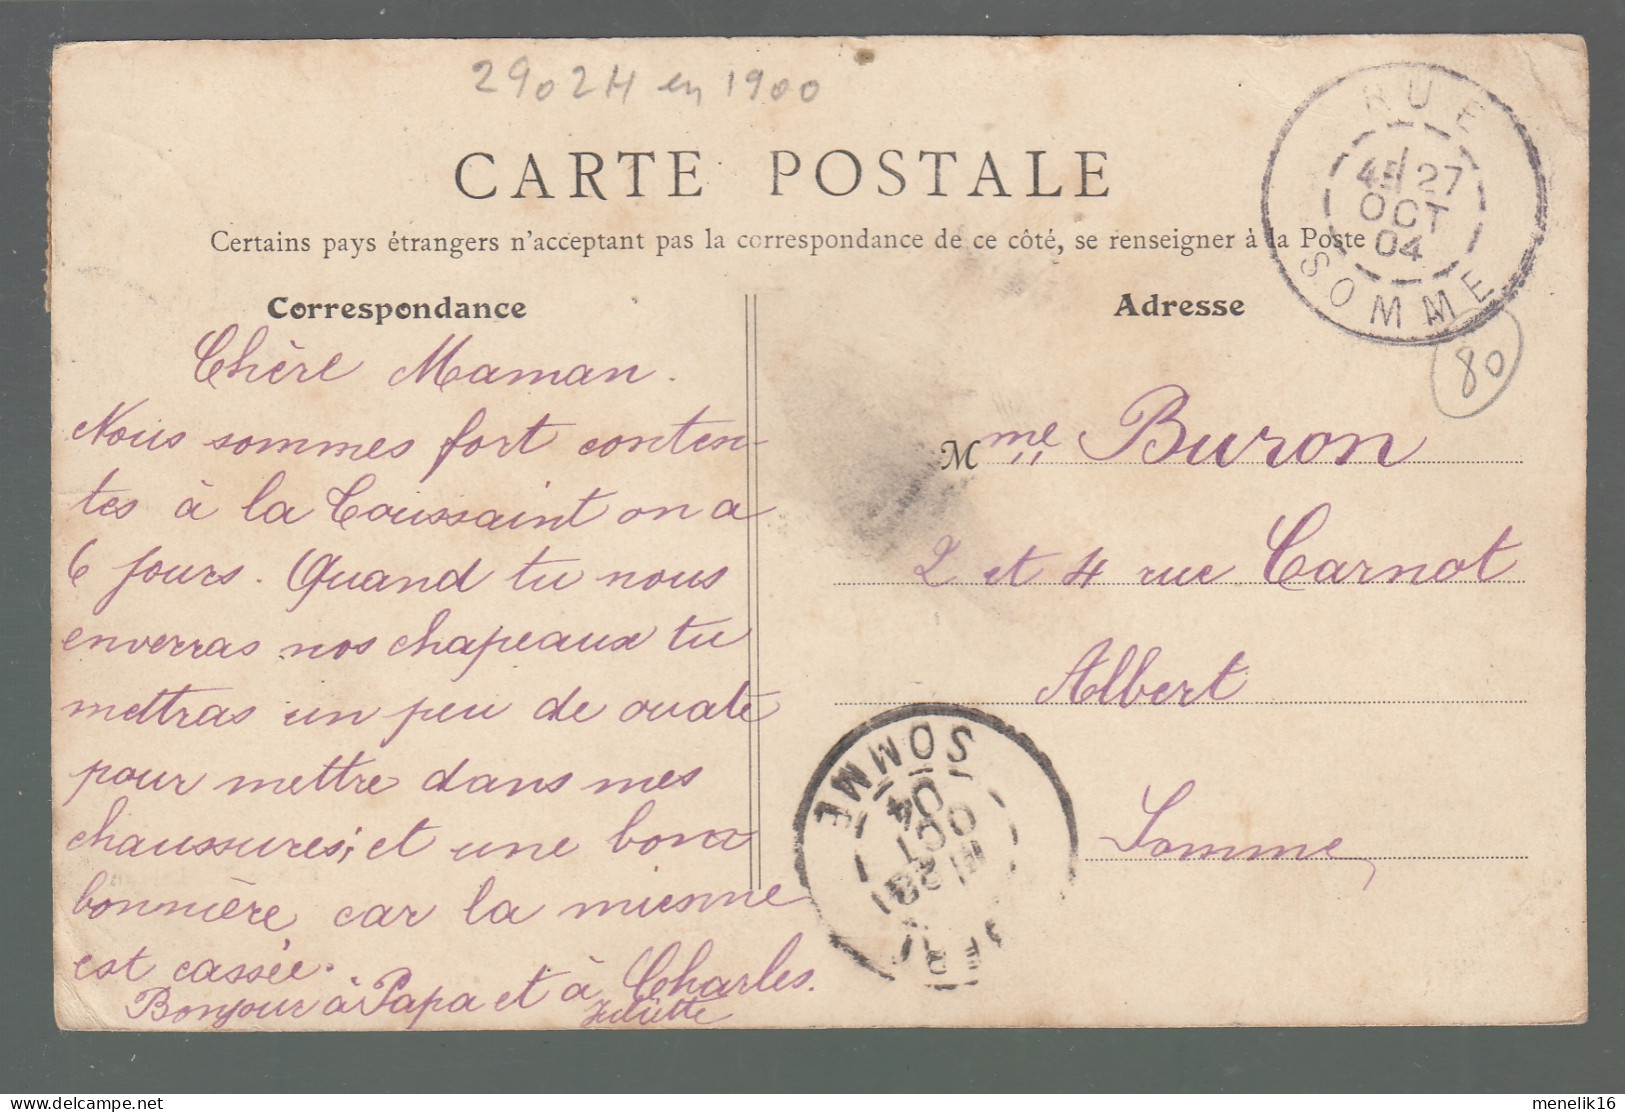 2902H en 1900
CARTE POSTALE
Certains pays étrangers n'acceptant pas la correspondance de ce côté, se renseigner à la Poste
RUE
27
OCT
04
SOMME
80
Correspondance
Chère Maman.
Nous sommes fort conten-
tes à la Toussaint on a
6 jours. Quand tu nous
enverras nos chapeaux tu
mettras un peu de ouate
pour mettre dans mes
chaussures; et une bonne
bonnière car la mienne
est cassée.
Bonjour à Papa et à Charles.
Juliette
Adresse
Mme Buron
2 et 4 rue Carnot
Albert
Somme
SOMME
OCT
04
delcampe.net
menelik16